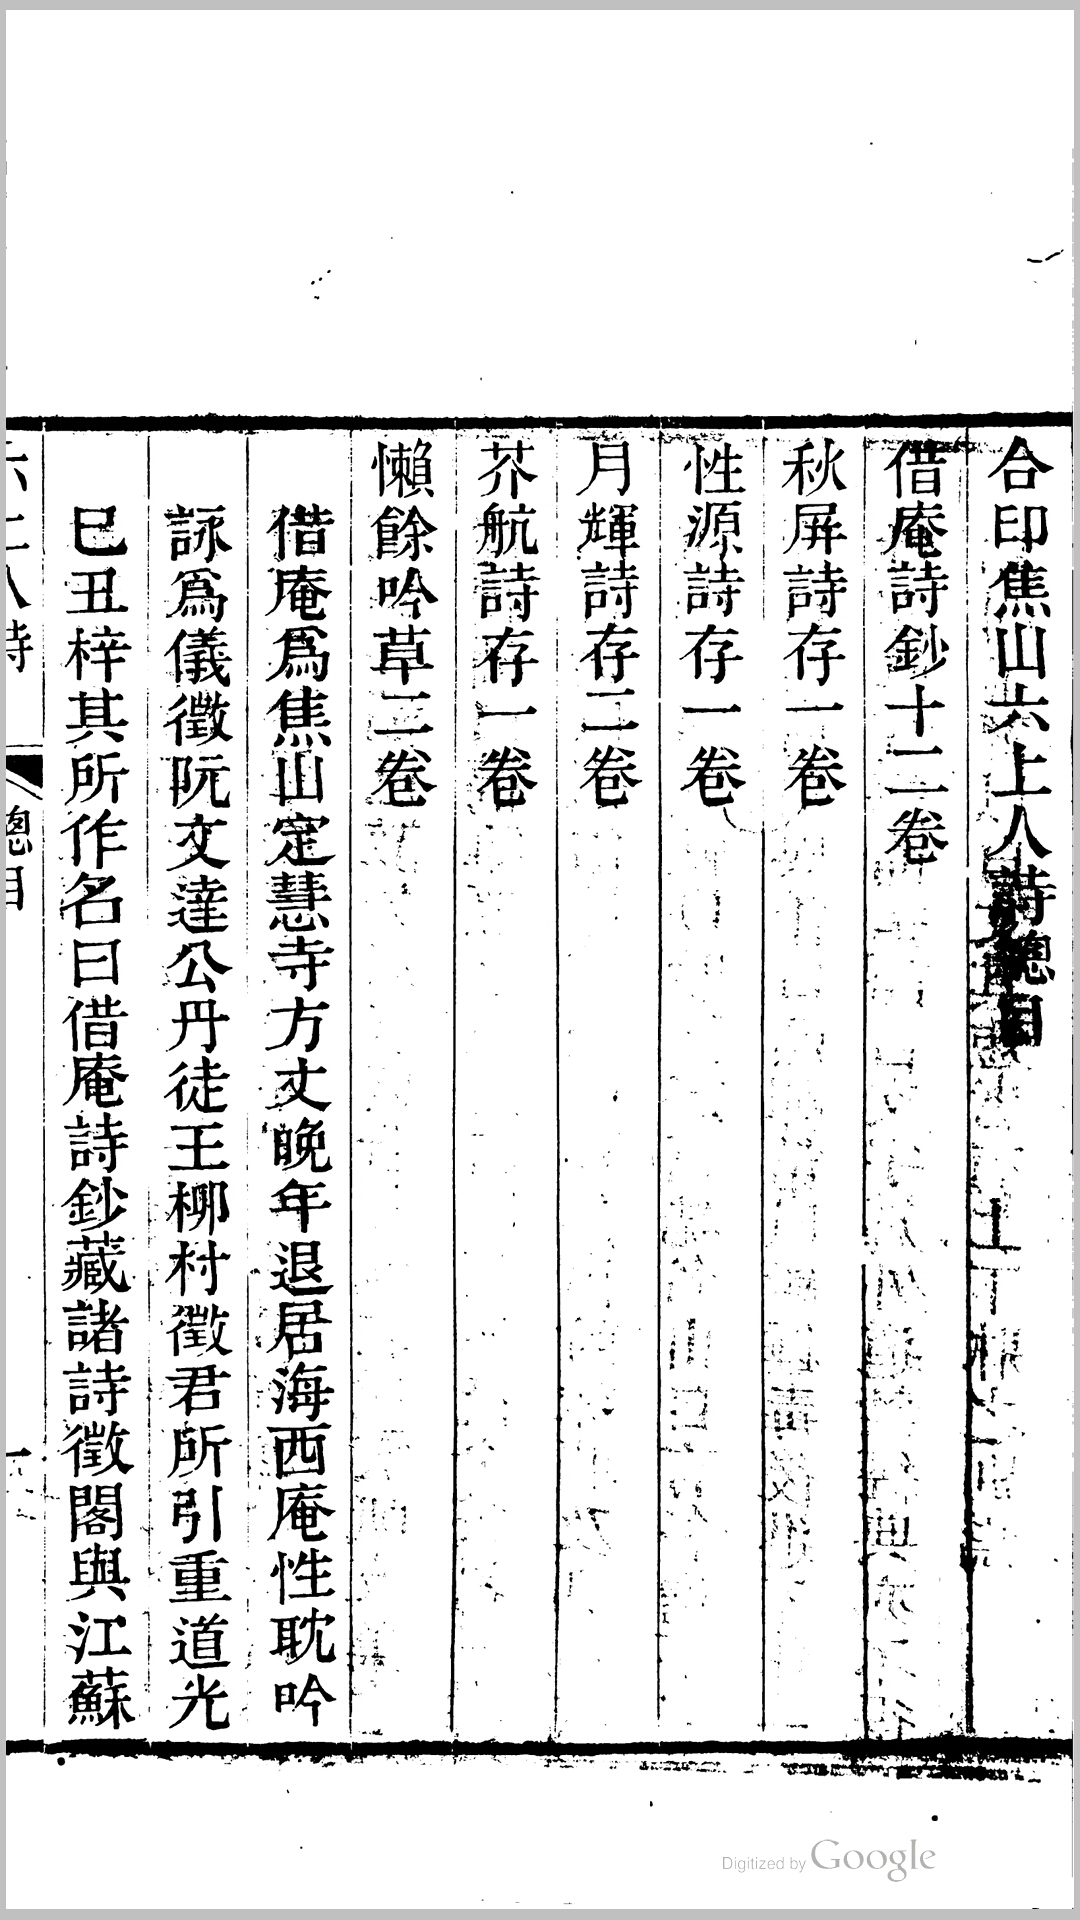 合印焦山六上人詩總目
借庵詩鈔十二卷
秋屏詩存一卷
性源詩存一卷
月輝詩存二卷
芥航詩存一卷
懶餘吟草二卷
借庵爲焦山定慧寺方丈晚年退居海西庵性耽吟
詠爲儀徵阮文達公丹徒王柳村徵君所引重道光
已丑梓其所作名曰借庵詩鈔藏諸詩徵閣與江蘇
總目
一
Digitized by Google